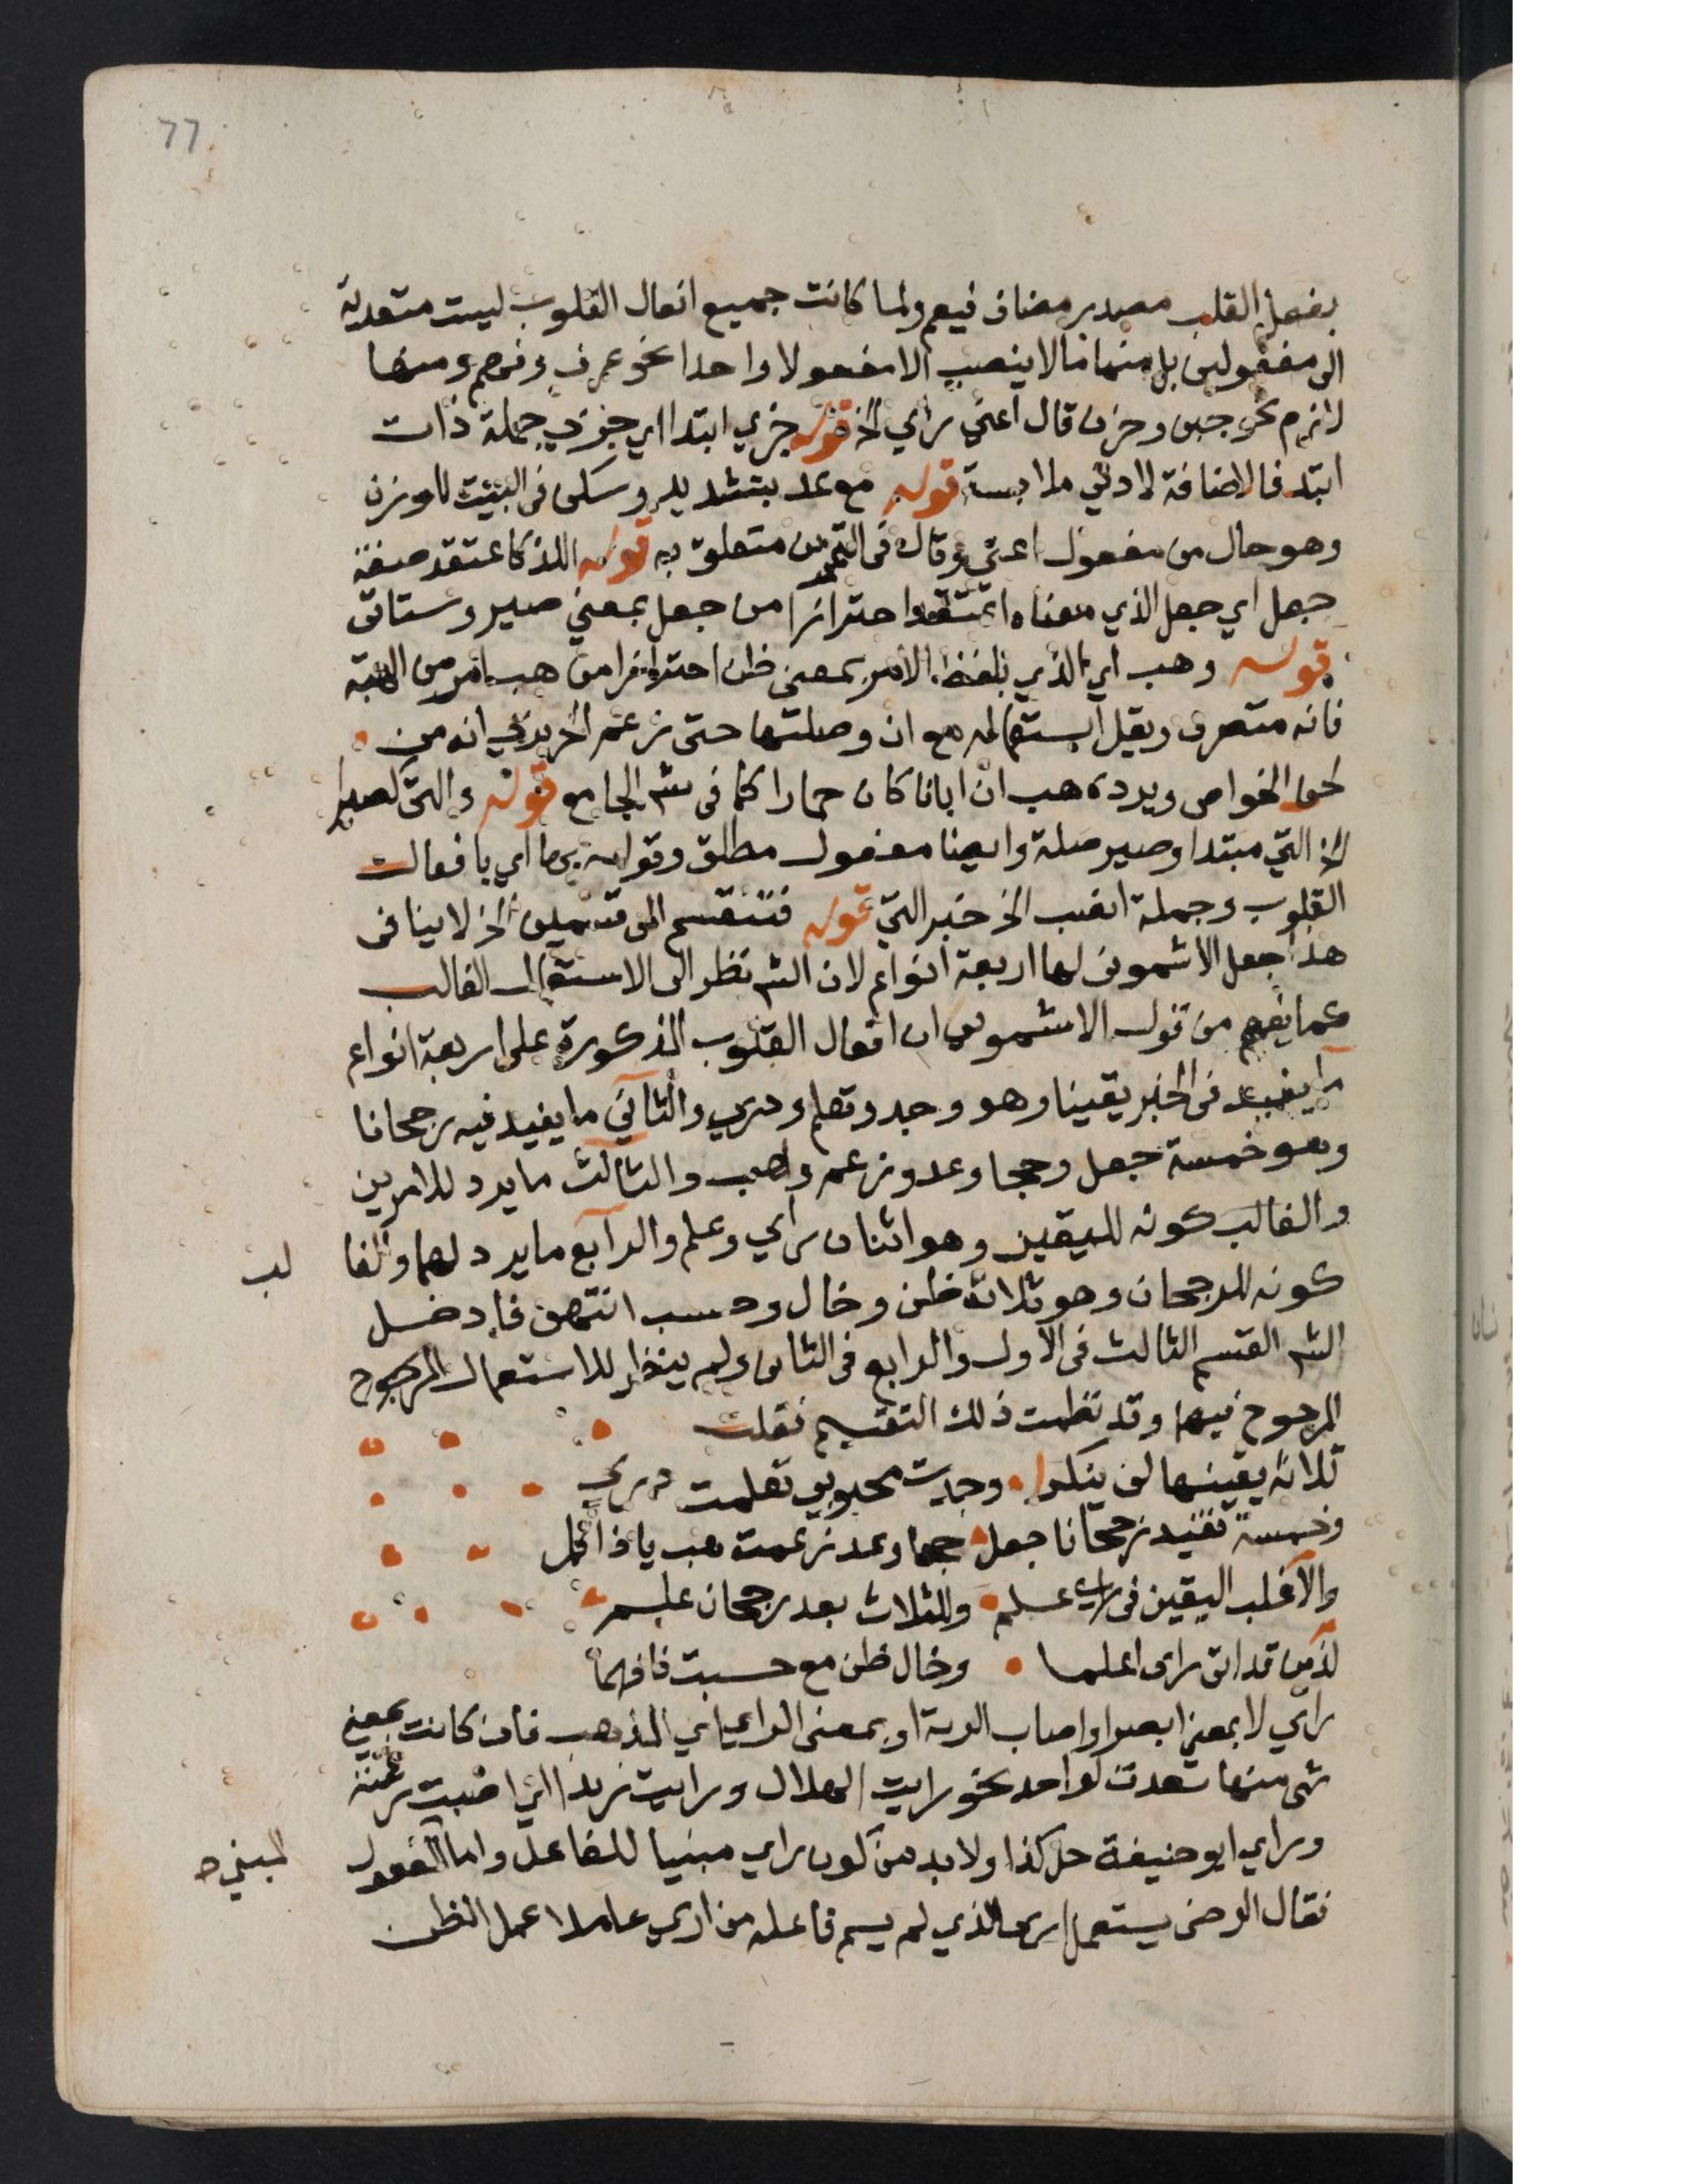 77
بفعل القلب مصدر مضاف فيعم ولما كانت جميع افعال القلوب ليست متعدية
الى مفعولين بل منها مالا ينصب الا مفعولا واحدا نحو عرف وفهم ومنها
لازم نحو جبن وحزن قال اعني راي الخ قوله جزي ابتدا اي جزي جملة ذات
ابتدا فالاضافة لادني ملابسة قوله مع عد بتشديد وسكن في البيت للوزن
وهو حال من مفعول اعني وقال في التمرين متعلق به قوله اللذ كاعتقد صفة
جعل اي جعل الذي معناه اعتقد احترازا من جعل بمعني صير وستاتي
قوله وهب اي الذي بلفظ الامر بمعنى ظن احترازا من هب امر من الهبة
فانه متصرف ويقل استعماله مع ان وصلتها حتى زعم الحريري انه من
لحن الخواص ويرده هب ان ابانا كان حمارا كما في شر الجامع قوله والتي كصيرا
الخ التي مبتدا وصير صلة وايضا مفعول مطلق وقوله بها اي بافعال
القلوب وجملة انصب الخ خبر التي قوله فتنقسم الى قسمين الخ لا ينافي
هذا جعل الاشموني لها اربعة انواع لان الش نظر الى الاستعمال الغالب
كما يفهم من قول الاشموني ان افعال القلوب المذكورة على اربعة انواع
ما يفيد في الخبر يقينا وهو وجد وتعلم ودري والثاني ما يفيد فيه رجحانا
وهو خمسة جعل وحجا وعد وزعم وهب والثالث ما يرد للامرين
والغالب كونه لليقين وهو اثنان راي وعلم والرابع ما يرد لهما والغا
لب
كونه للرجحان وهو ثلاثة ظن وخال وحسب انتهى فادخل
الش القسم الثالث في الاول والرابع في الثاني ولم ينظر للاستعمال المرجوح
المرجوح فيهما وقد نظمت ذلك التقسيم فقلت
ثلاثة يقينها لن ينكرا وجدت محبوبي تعلمت دري
وخمسة تفيد رجحانا جعل حجا وعد زعمت هب يا ذا
والاغلب اليقين في راي علم وللثلاث بعد رجحان علم
لذين قد اتى راى اعلما وخال ظن مع حسبت فافهما
راي لا بمعنى ابصر او اصاب الرية او بمعنى الراي اي المذهب فان كانت بمعني
شي منها تعدت لواحد نحو رايت الهلال ورايت زيدا اي اصبت رئته
وراي ابو حنيفة حل كذا ولا بد من كون راي مبنيا للفاعل واما المفعول
المبني ح
فقال الرضى يستعمل ارى الذي لم يسم فاعله من اري عاملا عمل الظن